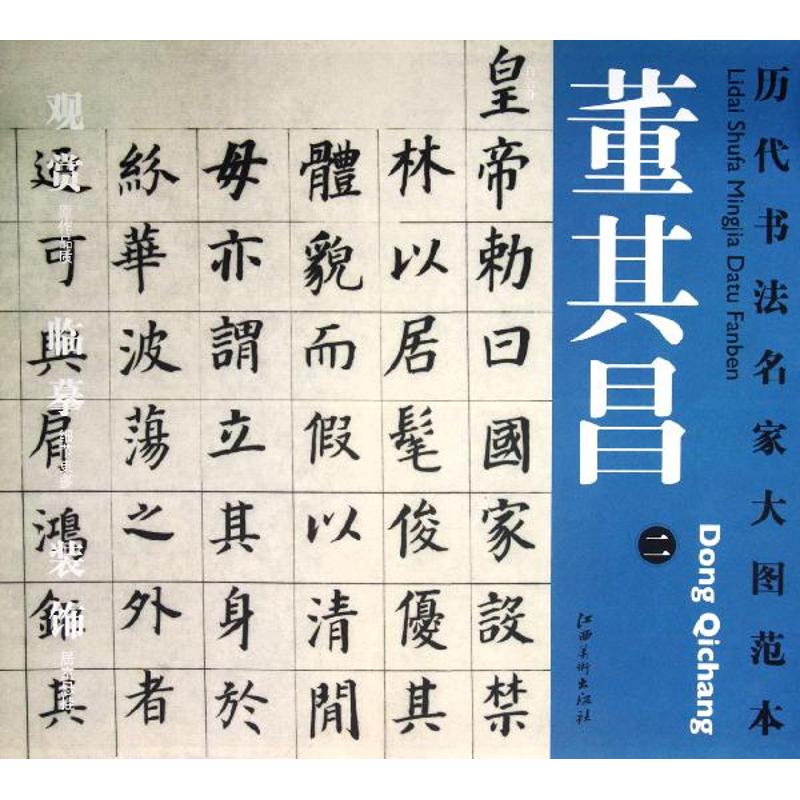 历代书法名家大图范本
Lidai Shufa Mingjia Datu Fanben
董其昌
二
Dong Qichang
江西美术出版社
皇帝勅曰國家設禁
林以居髦俊優其
體貌而假以清閒
毋亦謂立其身於
紛華波蕩之外者
可與肩鴻鉅其
观赏
原作品质
临摹
装饰